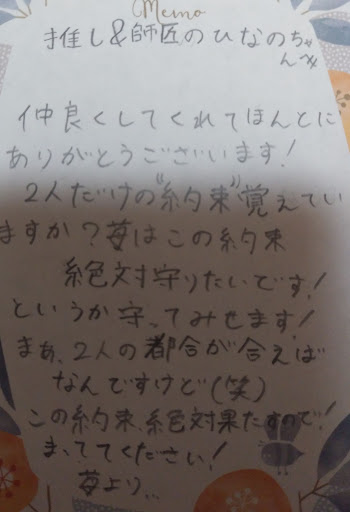 Memo
推し&師匠のひなのちゃ
んへ
仲良くしてくれてほんとに
ありがとうございます!
2人だけの"約束"覚えてい
ますか?苺はこの約束
絶対守りたいです!
というか守ってみせます!
まぁ、2人の都合が合えば
なんですけど(笑)
この約束、絶対果たすので!
まっててください!
苺より...